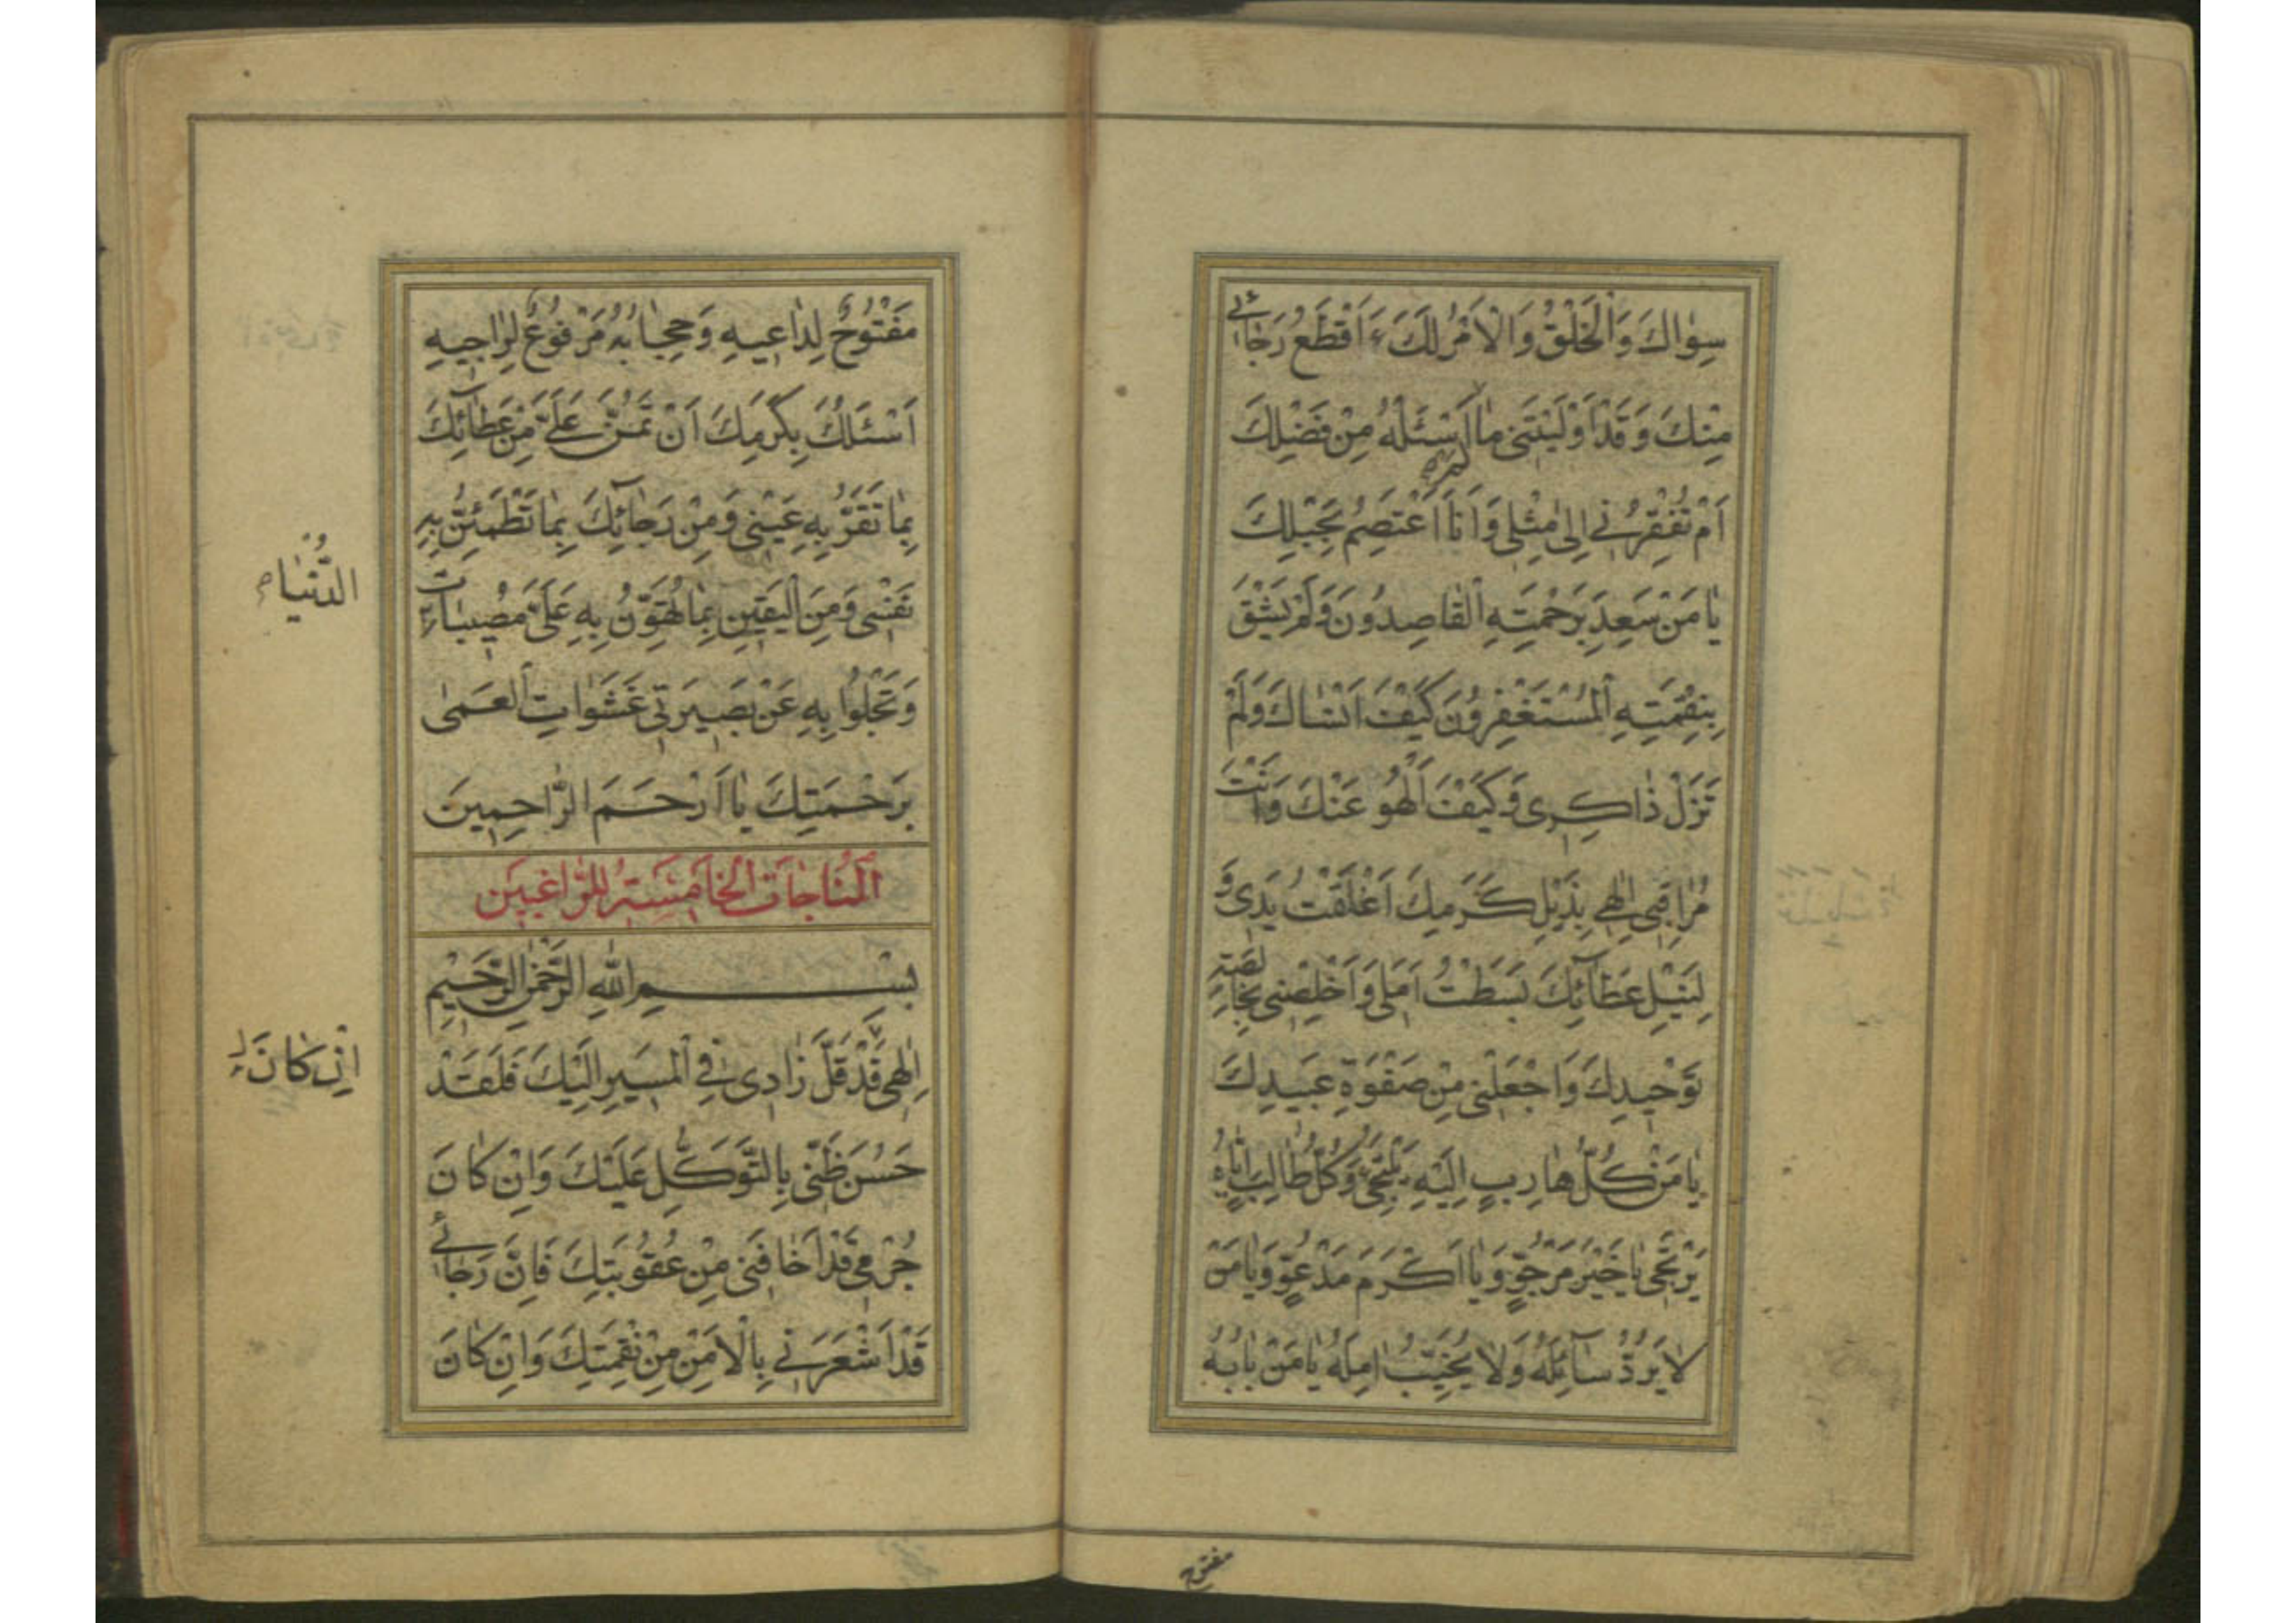 سِوٰاكَ وَالْخَلْقُ وَالْاَمْرُ لَكَ ءَاَقْطَعُ رَجٰائى
مِنْكَ وَقَدْ اَوْلَيْتَنى مٰا لَمْ اَسْئَلْهُ مِنْ فَضْلِكَ
اَمْ تُفْقِرُنى اِلىٰ مِثْلى وَاَنَا اَعْتَصِمُ بِحَبْلِكَ
يٰا مَنْ سَعِدَ بِرَحْمَتِهِ الْقٰاصِدُونَ وَلَمْ يَشْقَ
بِنِقْمَتِهِ الْمُسْتَغْفِرُونَ كَيْفَ اَنْسٰاكَ وَلَمْ
تَزَلْ ذٰاكِرى وَكَيْفَ اَلْهُو عَنْكَ وَاَنْتَ
مُرٰاقِبى اِلٰهى بِذَيْلِ كَرَمِكَ اَعْلَقْتُ يَدِى وَ
لِنَيْلِ عَطٰآئِكَ بَسَطْتُ اَمَلى وَاَخْلِصْنى بِخٰالِصَةِ
تَوْحيدِكَ وَاجْعَلْنى مِنْ صَفْوَةِ عَبيدِكَ
يٰا مَنْ كُلُّ هٰارِبٍ اِلَيْهِ يَلْتَجِئُ وَكُلُّ طٰالِبٍ اِيّٰاهُ
يَرْتَجى يٰا خَيْرَ مَرْجُوٍّ وَيٰا اَكْرَمَ مَدْعُوٍّ وَيٰا مَنْ
لاٰ يَرُدُّ سٰآئِلَهُ وَلاٰ يُخَيِّبُ اٰمِلَهُ يٰا مَنْ بٰابُهُ
مفتوح
مَفْتُوحٌ لِدٰاعيهِ وَحِجٰابُهُ مَرْفُوعٌ لِرٰاجيهِ
اَسْئَلُكَ بِكَرَمِكَ اَنْ تَمُنَّ عَلَىَّ مِنْ عَطٰآئِكَ
بِمٰا تَقَرُّ بِهِ عَيْنى وَمِنْ رَجٰآئِكَ بِمٰا تَطْمَئِنُّ بِهِ
نَفْسى وَمِنَ الْيَقينِ بِمٰا تُهَوِّنُ بِهِ عَلَىَّ مُصيبٰاتِ
الدُّنْيٰا
وَتَجْلُوا بِهِ عَنْ بَصيرَتى غَشَوٰاتِ الْعَمىٰ
بِرَحْمَتِكَ يٰا اَرْحَمَ الرّٰاحِمينَ
اَلْمُنٰاجٰاةُ الْخٰامِسَةُ لِلرّٰاغِبينَ
بِسْمِ اللّٰهِ الرَّحْمٰنِ الرَّحيمِ
اِلٰهى قَدْ قَلَّ زٰادى فِى الْمَسيرِ اِلَيْكَ فَلَقَدْ
اِنْ كٰانَ
حَسُنَ ظَنّى بِالتَّوَكُّلِ عَلَيْكَ وَاِنْ كٰانَ
جُرْمى قَدْ اَخٰافَنى مِنْ عُقُوبَتِكَ فَاِنَّ رَجٰائى
قَدْ اَشْعَرَنى بِالْاَمْنِ مِنْ نِقْمَتِكَ وَاِنْ كٰانَ